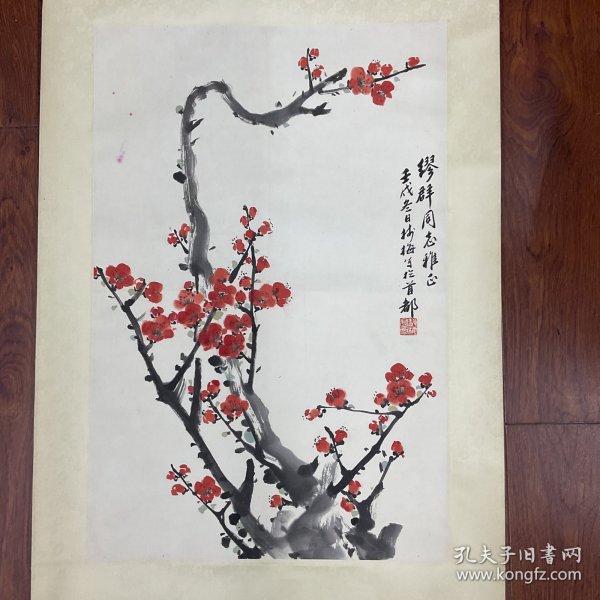 缪群同志雅正
壬戌冬日树梅写于首都
孔夫子旧书网
www.kongfz.com